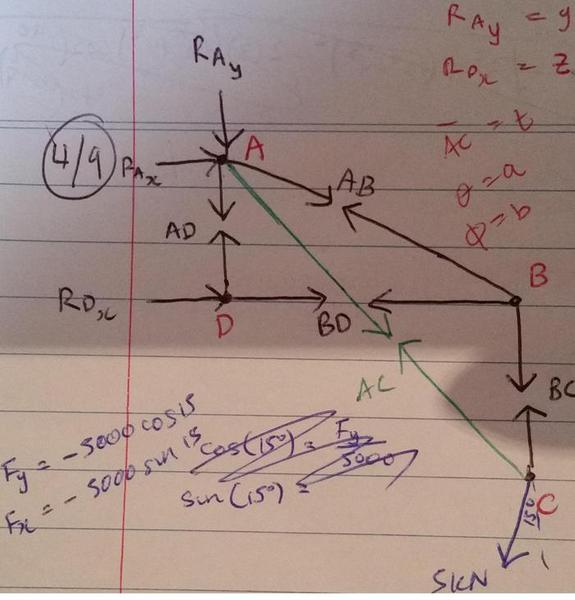 R_Ay = y
R_Dx = z
AC = t
θ = a
Q = b
R_Ay
4/9
R_Ax
A
AB
AD
B
R_Dx
D
BD
BC
AC
F_y = -5000 cos 15
F_x = -5000 sin 15
cos(15°) = F_y / 5000
sin(15°) =
C
15°
5KN